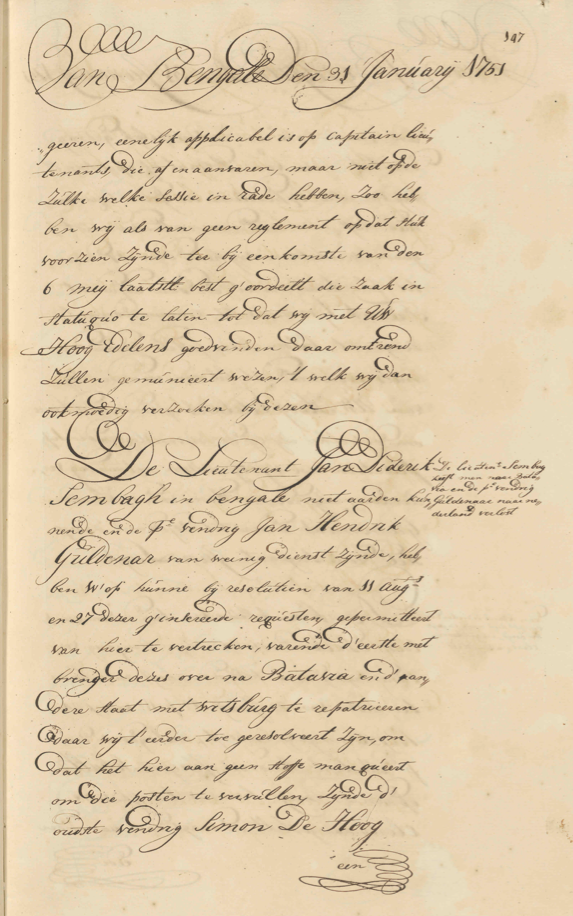 147
Van Bengale Den 31 Januarij 1751
geeren, eenelijk applicabel is op Capitain lieu,
tenants, die af en aanvaren, maar niet op de
Zulke welke Sessie in rade hebben, Zoo heb
ben wij als van geen reglement op dat stuk
voorzien Zijnde ter bij eenkomste van den
6 meij laatstl best g'oordeelt die Zaak in
statu quo te laten tot dat wij met Uw
Hoog Edelens goedvinden daar omtrend
Zullen gemunieert wezen, 't welk wij dan
ook spoedig verzoeken bij dezen
De Lieutenant Jan Diderik
Sembagh in bengale niet aarden kun,
nende en de Pl. vendrig Jan Hendrik
Guldenar van weineg dienst Zijnde, heb,
ben w' op hunne bij resolutien van 11 Aug
en 27 dezer g'inkreede requesten gepermitteert
van hier te vertrecken, varende d' eerste met
brenger dezes over na Batavia en d' aan,
dere staat met wetsburg te repatrieeren
daar wij t' eerder toe geresolveert Zijn, om
dat het hier aan geen stoffe manqueert
om die posten te vervullen, Zijnde d'
oudste vendrig Simon De Hoog
een
De lieuten.t Sembag
man naar Bata,
via en de pl vendrig
Guldenaar naar ne,
derland verlost